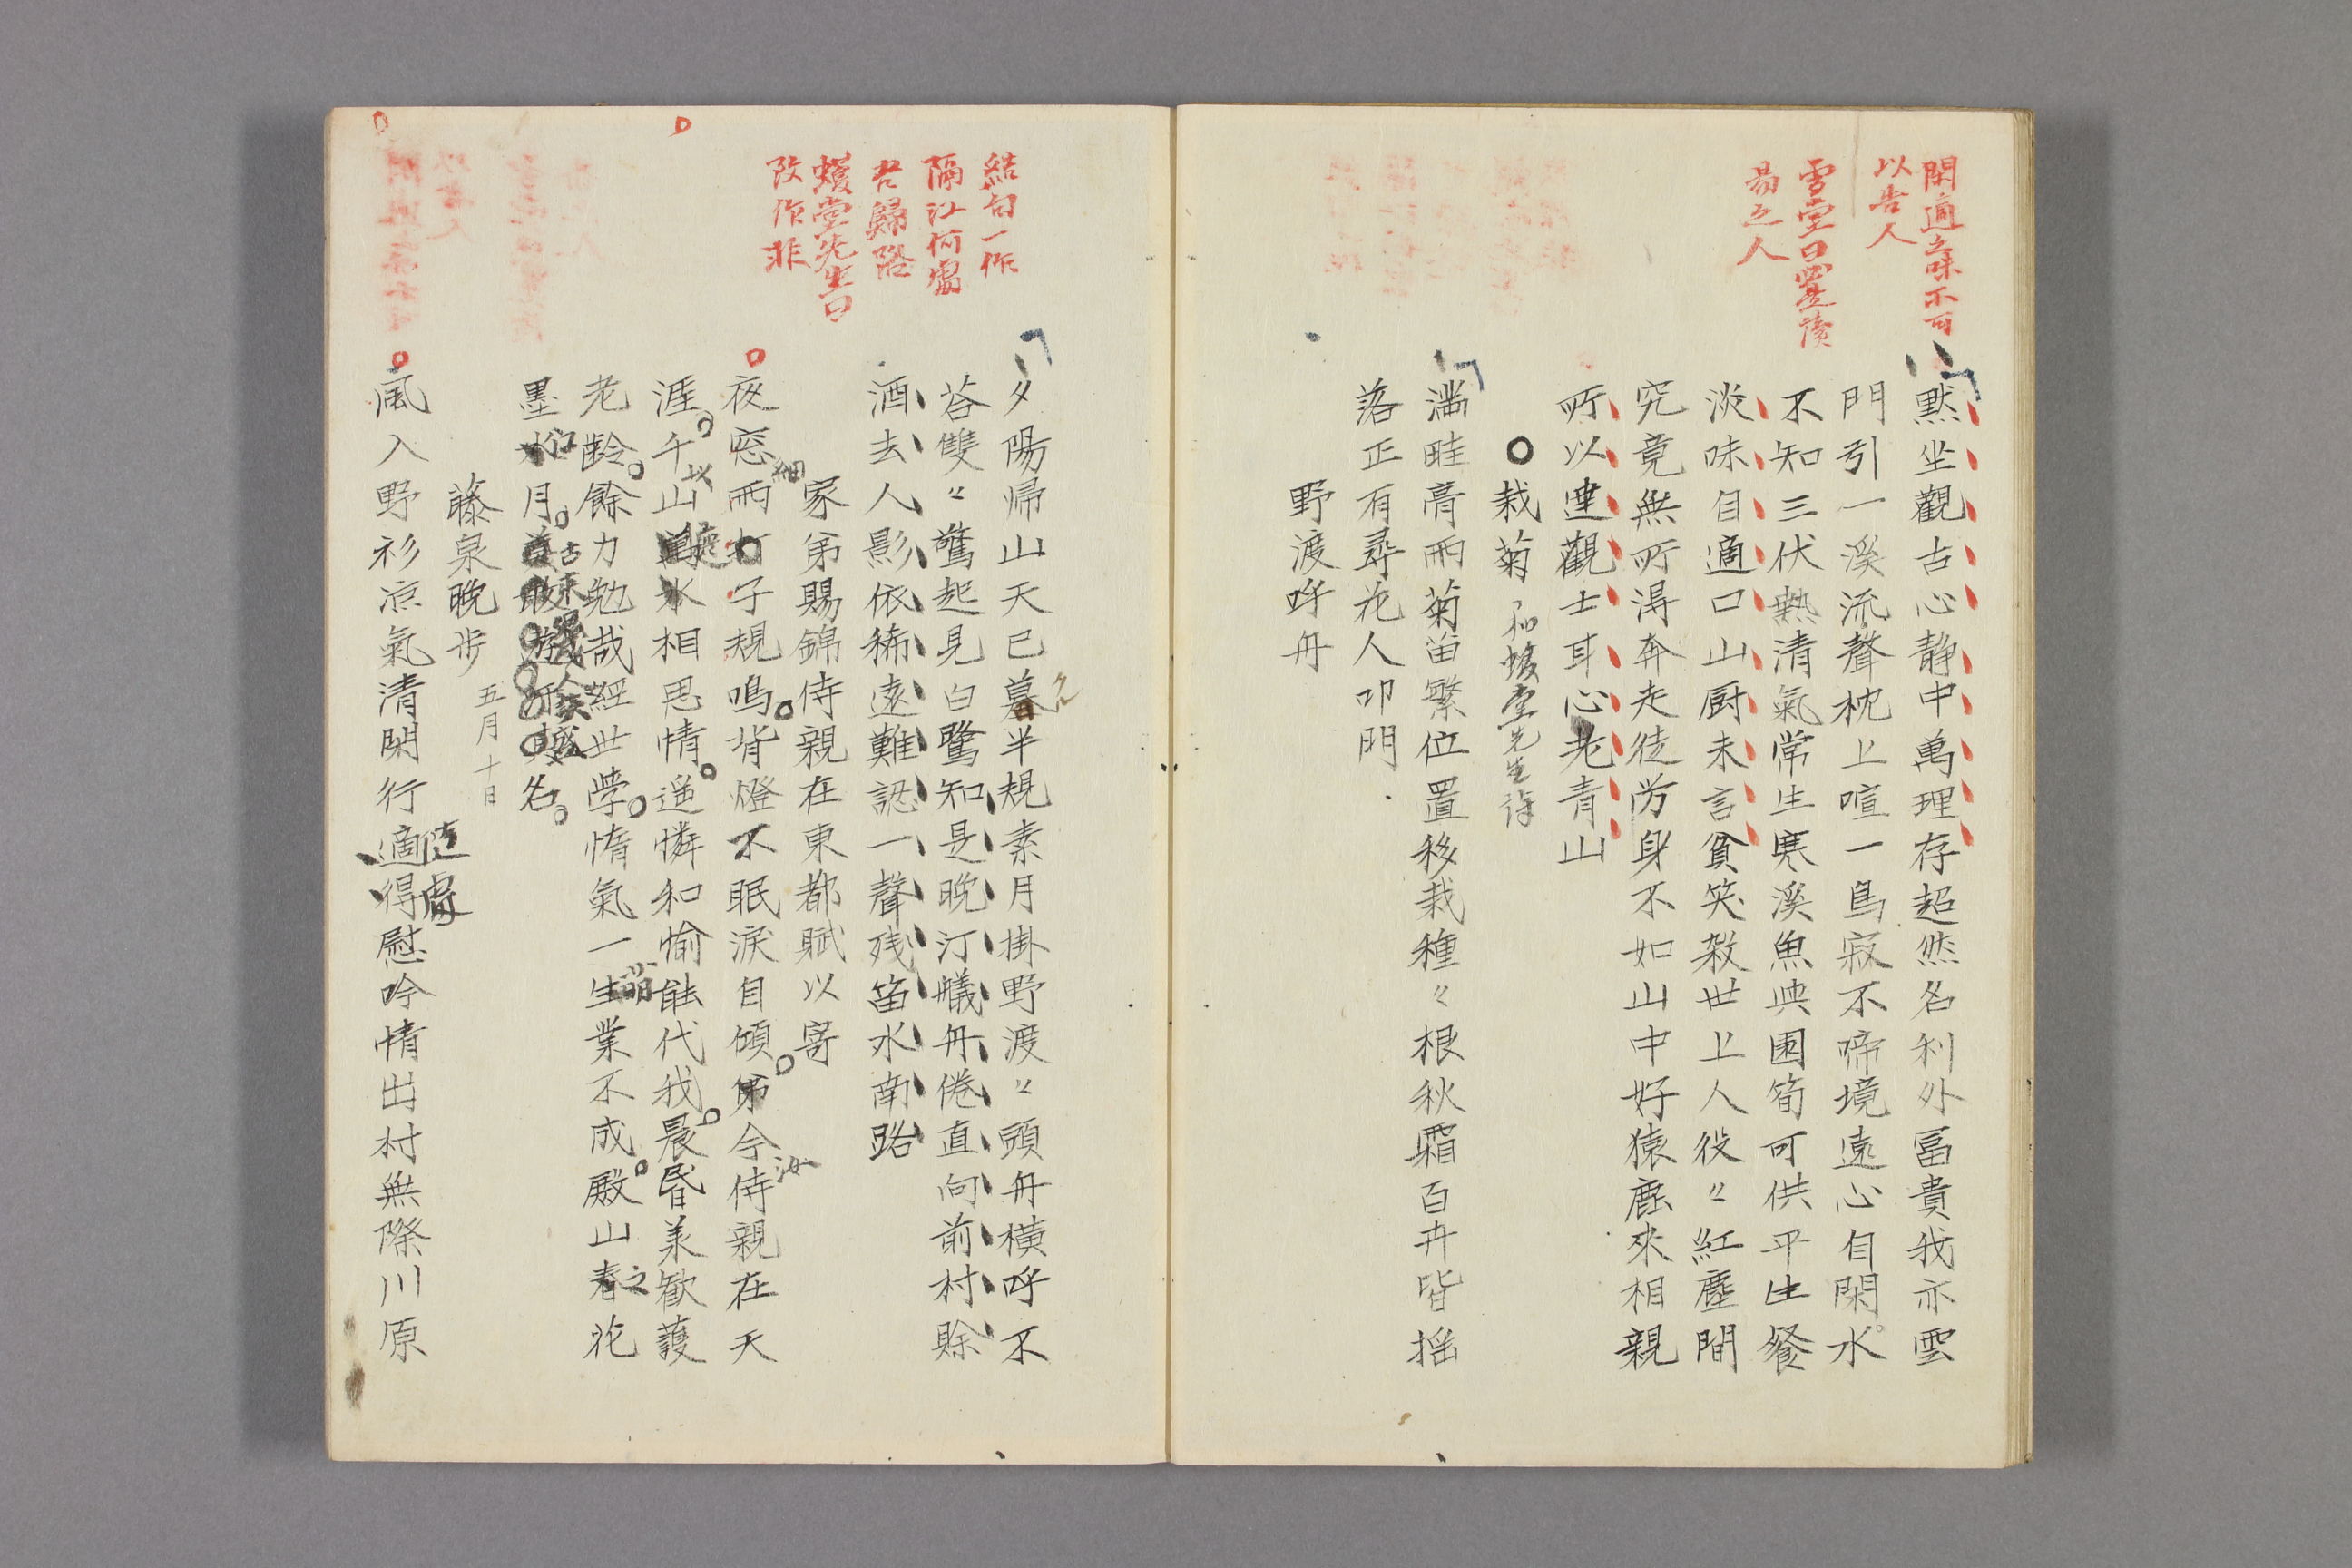 閑適之味不可
以告人
雪堂曰寧讓
易之人
默坐觀古心静中萬理存超然名利外冨貴我亦雲
門引一溪流聲枕上喧一鳥寂不啼境遠心自閑水
不知三伏熱清氣常生寒溪魚與園筍可供平生餐
淡味自適口山厨未言貧笑殺世上人役〻紅塵間
究竟無所得奔走徒労身不如山中好猿鹿來相親
所以達觀士耳心老青山
栽菊
満畦膏雨菊苗繁位置移栽種〻根秋霜百卉皆揺
落正有尋花人叩門
野渡呼舟
結句一作
隔江何處
君歸路
蠖堂先生曰
改作非
夕陽帰山天已暮半規素月掛野渡〻頭舟横呼不
荅雙〻驚起見白鷺知是晩汀艤舟倦直向前村賖
酒去人影依稀遠難認一聲残笛水南路
家弟賜錦侍親在東都賦以寄
夜窓雨子規鳴背燈不眠涙自傾弟今侍親在天
細
汝
涯千山萬水相思情遥憐和愉能代我晨昏羕歓護
老齢餘力勉哉經世學惰氣一生業不成殿山春花
之
墨水月名
江
古来
藤泉晩歩
五月十日
風入野衫凉氣清閑行適得慰吟情出村無際川原
随處